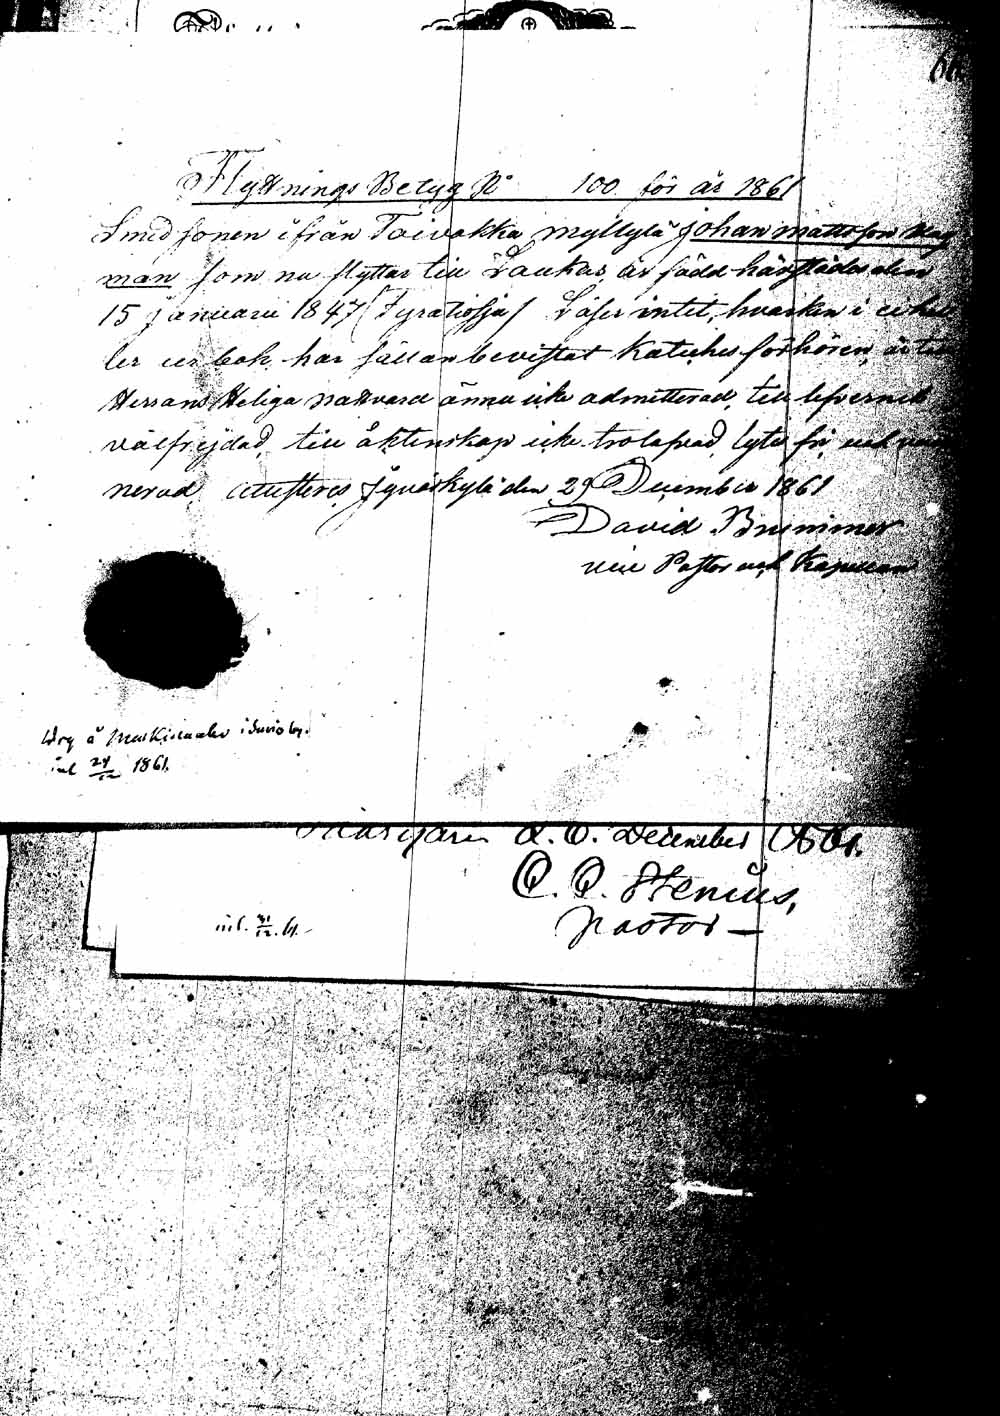 Flyttnings Betyg No 100 för år 1861
Smed sonen ifrån Toivakka myllylä Johan Mattsson
man som nu flyttar till Laukas, är född härstädes den
15 Januari 1847 Läser intet, hvarken i
ler ur bok, har sällan bevistat Katiches förhören, är till
Herrans Heliga Nattvard ännu icke admitterad, till lefverne
välfrejdad, till äktenskap icke trolofvad, lyte fri och vac
nerad, attesteras Jyväskylä den 29 December 1861
David Brummer
vice Pastor och Kapellan
i Savio by.
inl 1861.
d. O. December 1861.
O. O. Stenius,
Pastor —
inl. 31/12. 61. —